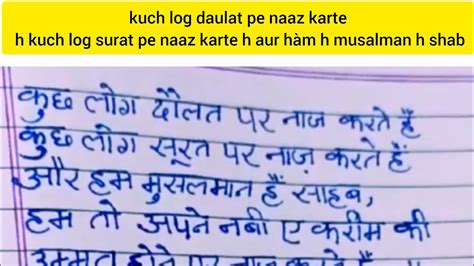 kuch log daulat pe naaz karte
h kuch log surat pe naaz karte h aur hàm h musalman h shab
कुछ लोग दौलत पर नाज करते हैं
कुछ लोग सूरत पर नाज़ करते हैं
और हम मुसलमान हैं साहब,
हम तो अपने नबी ए करीम की
उम्मत होने पर नाज करते हैं